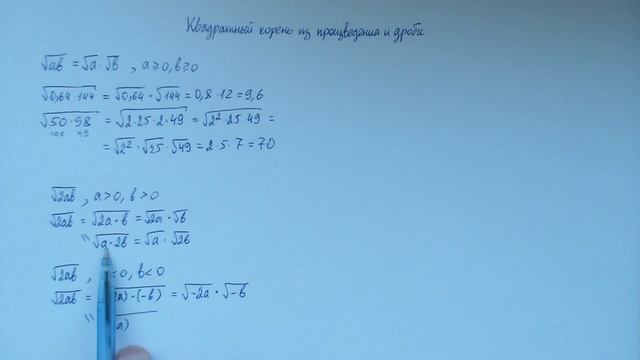 Квадратный корень из произведения и дроби
√ab = √a · √b , a ≥ 0, b ≥ 0
√0,64 · 144 = √0,64 · √144 = 0,8 · 12 = 9,6
√50 · 98 = √2 · 25 · 2 · 49 = √2² · 25 · 49 =
= √2² · √25 · √49 = 2 · 5 · 7 = 70
√2ab , a > 0, b > 0
√2ab = √2a · b = √2a · √b
" √a · 2b = √a · √2b
√2ab , < 0, b < 0
√2ab = a) · (-b) = √-2a · √-b
" a)